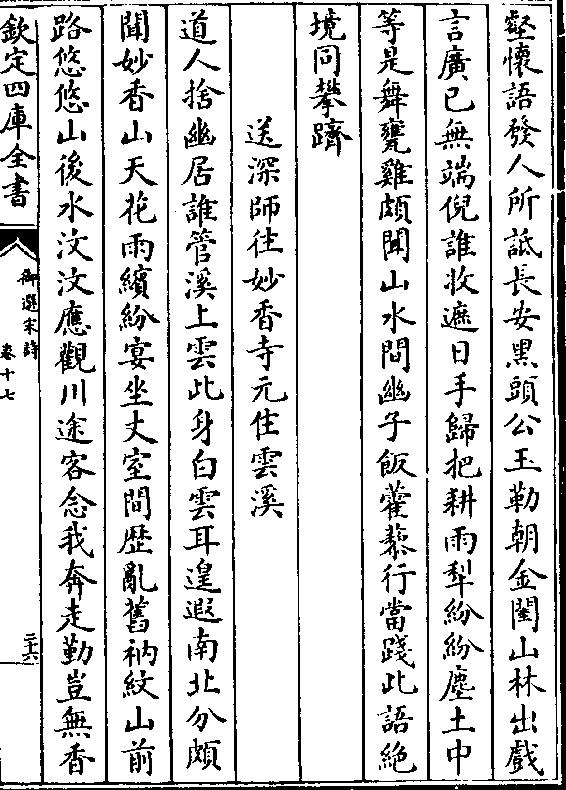 壑懷語發人所詆長安黑頭公玉勒朝金閨山林出戲
言廣已無端倪誰收遮日手歸把耕雨犁紛紛塵土中
等是舞甕雞頗聞山水間幽子飯藿藜行當踐此語絶
境同攀躋
送深師往妙香寺元住雲溪
道人捨幽居誰管溪上雲此身白雲耳遑遐南北分頗
聞妙香山天花雨繽紛宴坐丈室間歴亂舊衲紋山前
路悠悠山後水汶汶應觀川途客念我奔走勤豈無香
欽定四庫全書
御選宋詩
卷十七
二十六